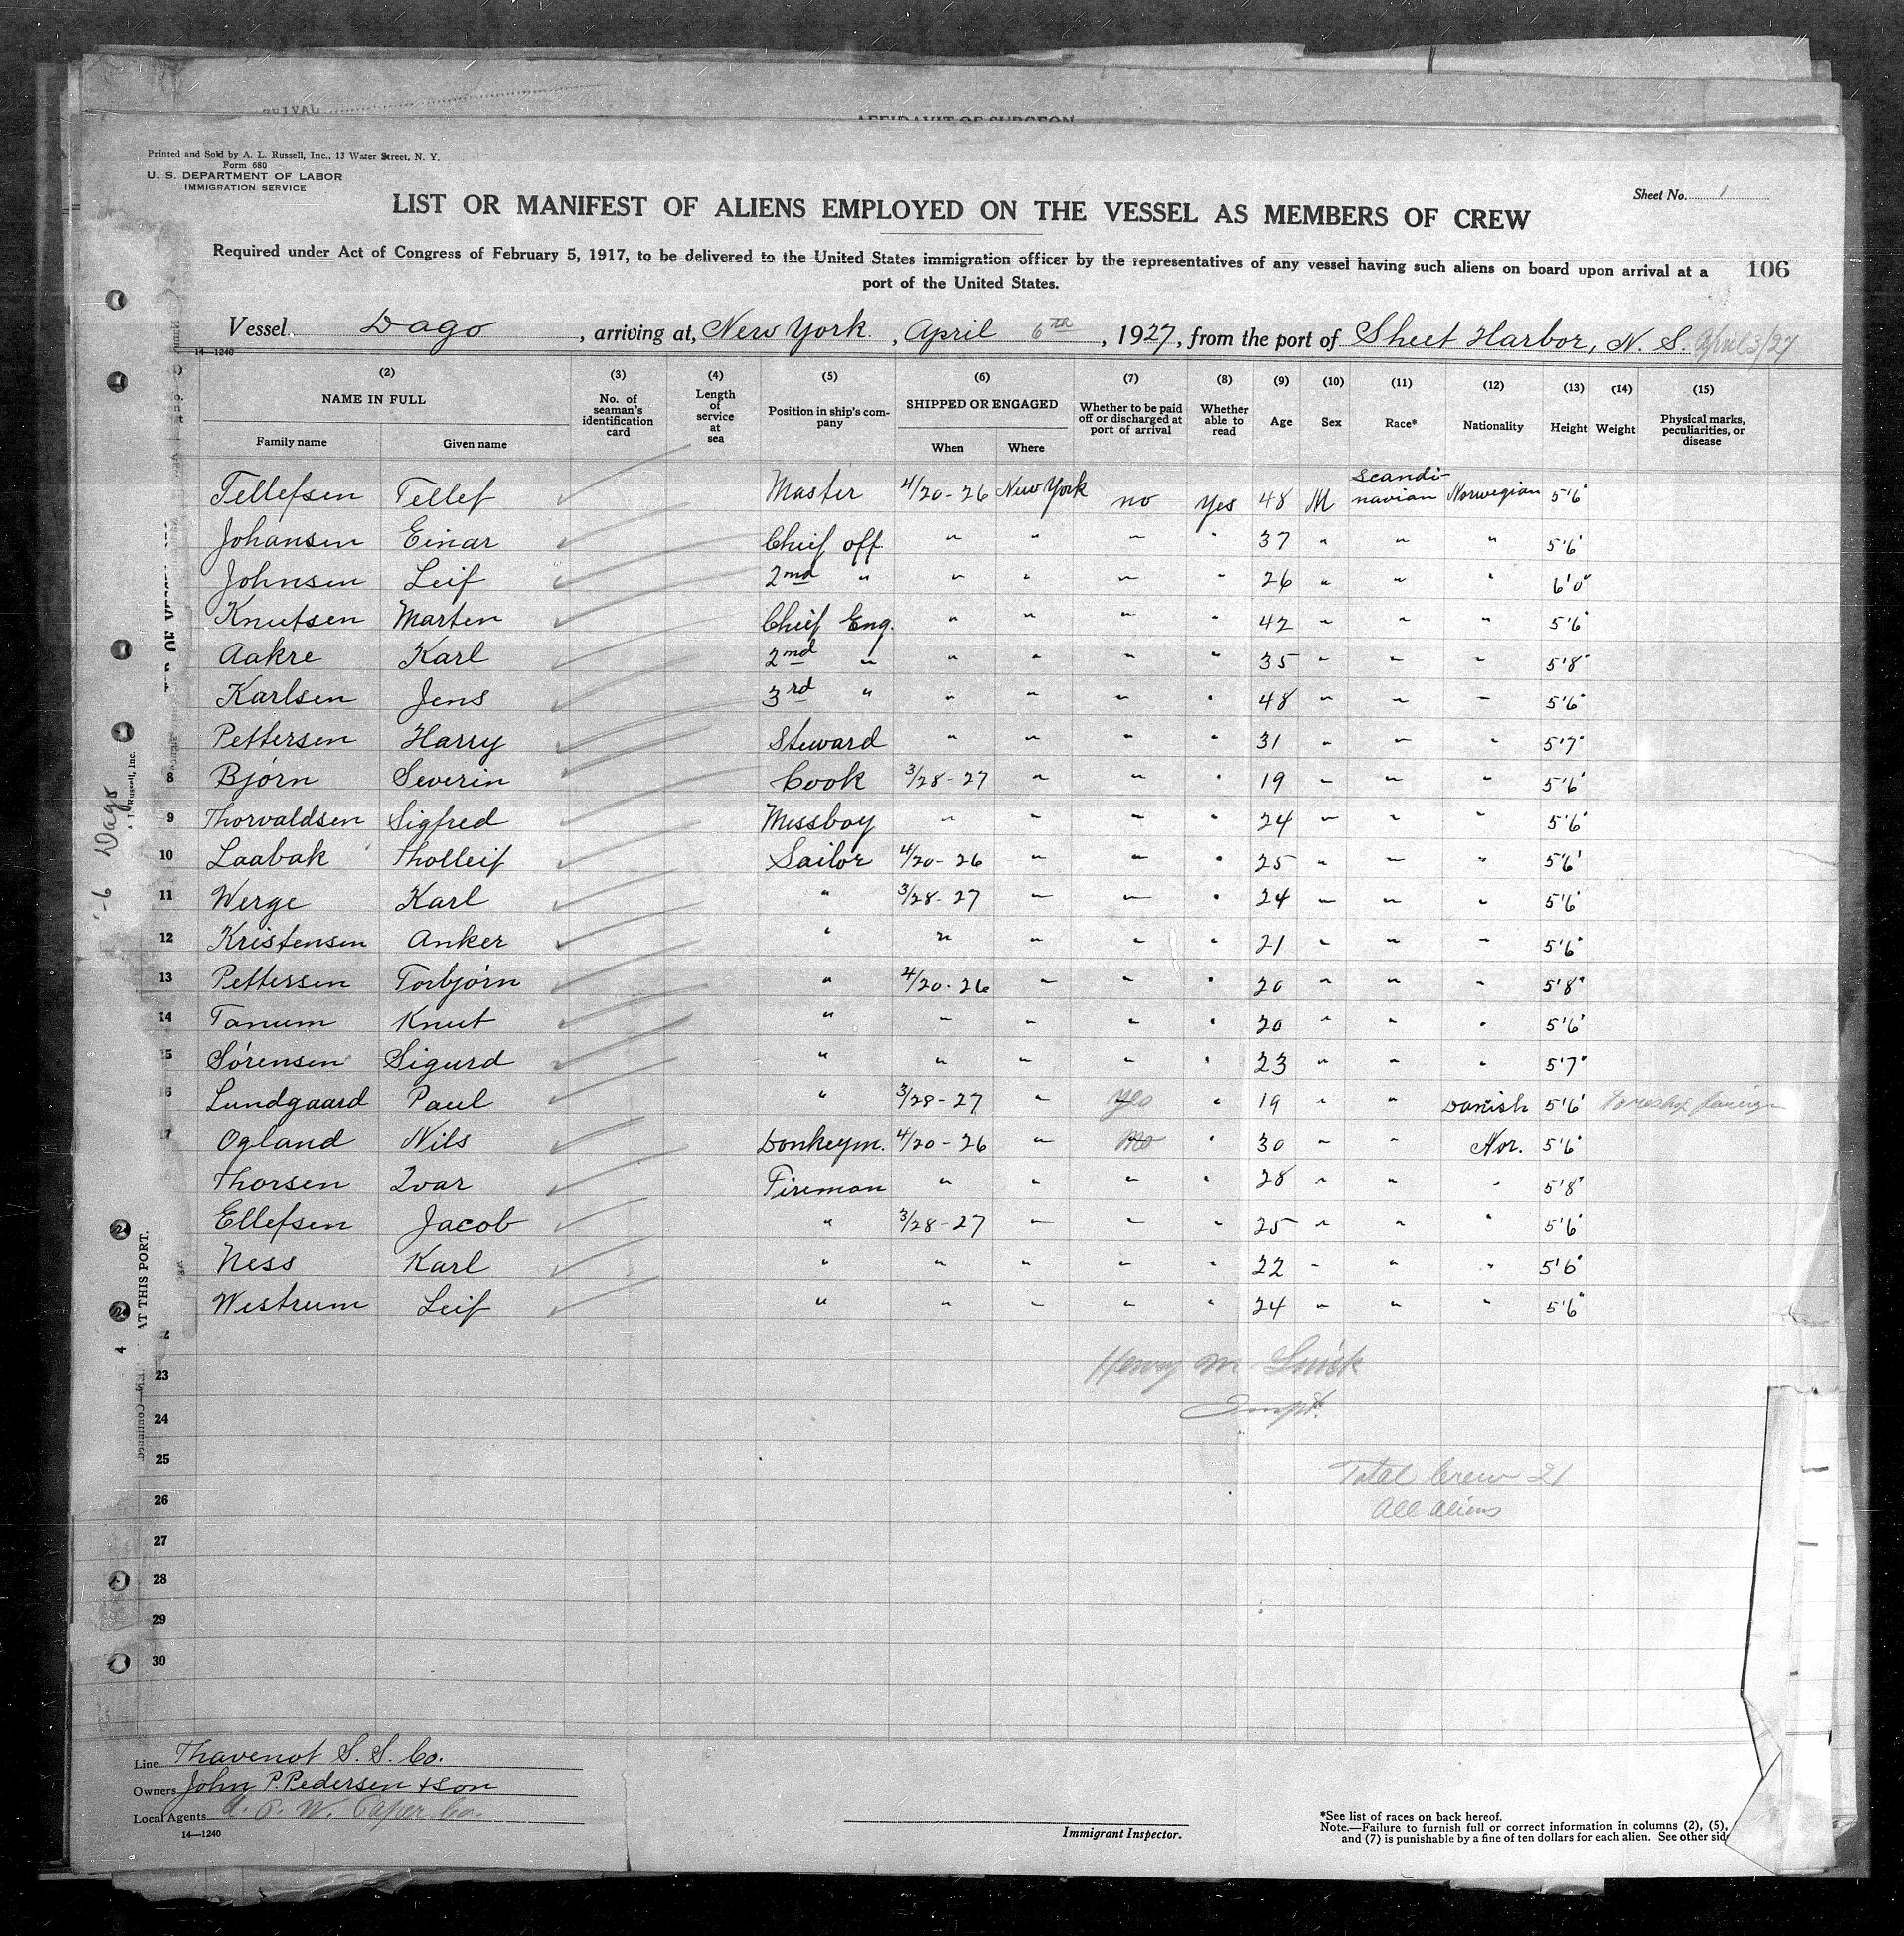 Printed and Sold by A. L. Russell, Inc., 13 Water Street, N. Y.
Form 680
U. S. DEPARTMENT OF LABOR
IMMIGRATION SERVICE
Sheet No. 1
LIST OR MANIFEST OF ALIENS EMPLOYED ON THE VESSEL AS MEMBERS OF CREW
Required under Act of Congress of February 5, 1917, to be delivered to the United States immigration officer by the representatives of any vessel having such aliens on board upon arrival at a
port of the United States.
106
Vessel Dago, arriving at, New York, April 6th, 1927, from the port of Sheet Harbor, N. S. April 3/27
14—1240
(2) (3) (4) (5) (6) (7) (8) (9) (10) (11) (12) (13) (14) (15)
NAME IN FULL No. of seaman's identification card Length of service at sea Position in ship's company SHIPPED OR ENGAGED Whether to be paid off or discharged at port of arrival Whether able to read Age Sex Race* Nationality Height Weight Physical marks, peculiarities, or disease
Family name Given name When Where
Tellefsen Tellef Master 4/20-26 New York no yes 48 M Scandinavian Norwegian 5'6"
Johansen Einar Chief off. " " " " 37 " " " 5'6"
Johnsen Leif 2nd " " " " " 26 " " " 6'0"
Knutsen Marten Chief Eng. " " " " 42 " " " 5'6"
Aakre Karl 2nd " " " " " 35 " " " 5'8"
Karlsen Jens 3rd " " " " " 48 " " " 5'6"
Pettersen Harry Steward " " " " 31 " " " 5'7"
8 Bjørn Severin Cook 3/28-27 " " " 19 " " " 5'6"
9 Thorvaldsen Sigfred Messboy " " " " 24 " " " 5'6"
10 Laabak Tholleif Sailor 4/20-26 " " " 25 " " " 5'6"
11 Werge Karl " 3/28-27 " " " 24 " " " 5'6"
12 Kristensen Anker " " " " " 21 " " " 5'6"
13 Pettersen Torbjørn " 4/20-26 " " " 20 " " " 5'8"
14 Tanum Knut " " " " " 20 " " " 5'6"
15 Sørensen Sigurd " " " " " 23 " " " 5'7"
6 Lundgaard Paul " 3/28-27 " yes " 19 " " Danish 5'6"
17 Ogland Nils Donkeym. 4/20-26 " no " 30 " " Nor. 5'6"
Thorsen Ivar Fireman " " " " 28 " " " 5'8"
Ellefsen Jacob " 3/28-27 " " " 25 " " " 5'6"
Ness Karl " " " " " 22 " " " 5'6"
Westrum Leif " " " " " 24 " " " 5'6"
2
23 Henry M.
24 Inspt.
25 Total Crew 21
26 All aliens
27
28
29
30
Line Thavenot S. S. Co.
Owners John P. Pedersen & son
Local Agents A. P. W. Paper Co.
14—1240
Immigrant Inspector.
*See list of races on back hereof.
Note.—Failure to furnish full or correct information in columns (2), (5),
and (7) is punishable by a fine of ten dollars for each alien. See other sid
Dago
AT THIS PORT.